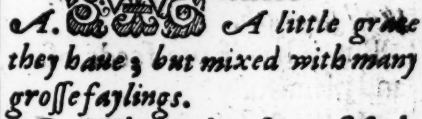 A. A little grace
they haue; but mixed with many
grosse faylings.